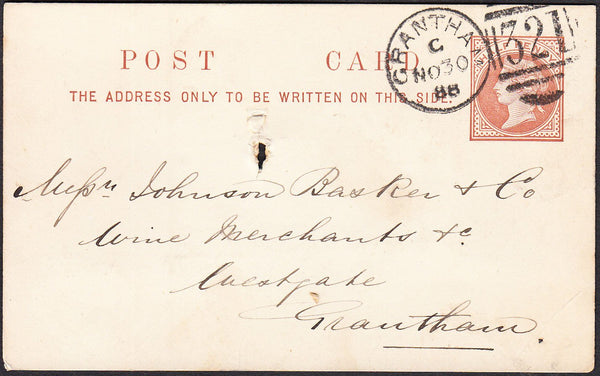 POST CARD
THE ADDRESS ONLY TO BE WRITTEN ON THIS SIDE.
GRANTHAM
C
NO 30
88
321
Messrs Johnson Basker & Co
Wine Merchants &c
Westgate
Grantham